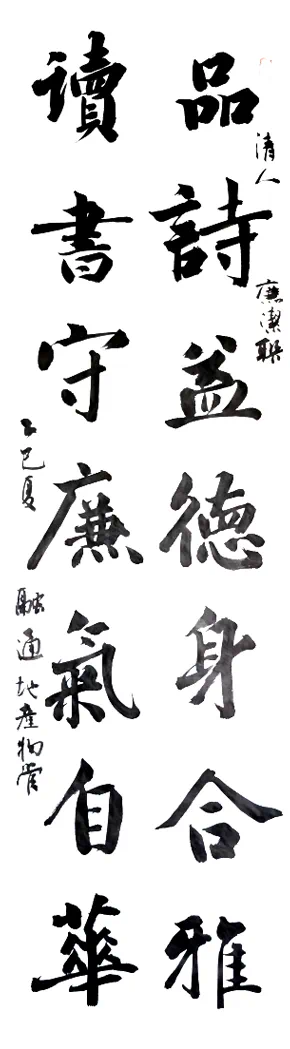 清人 廉潔聯
品詩益德身合雅
讀書守廉氣自華
乙巳夏 融通地產物管